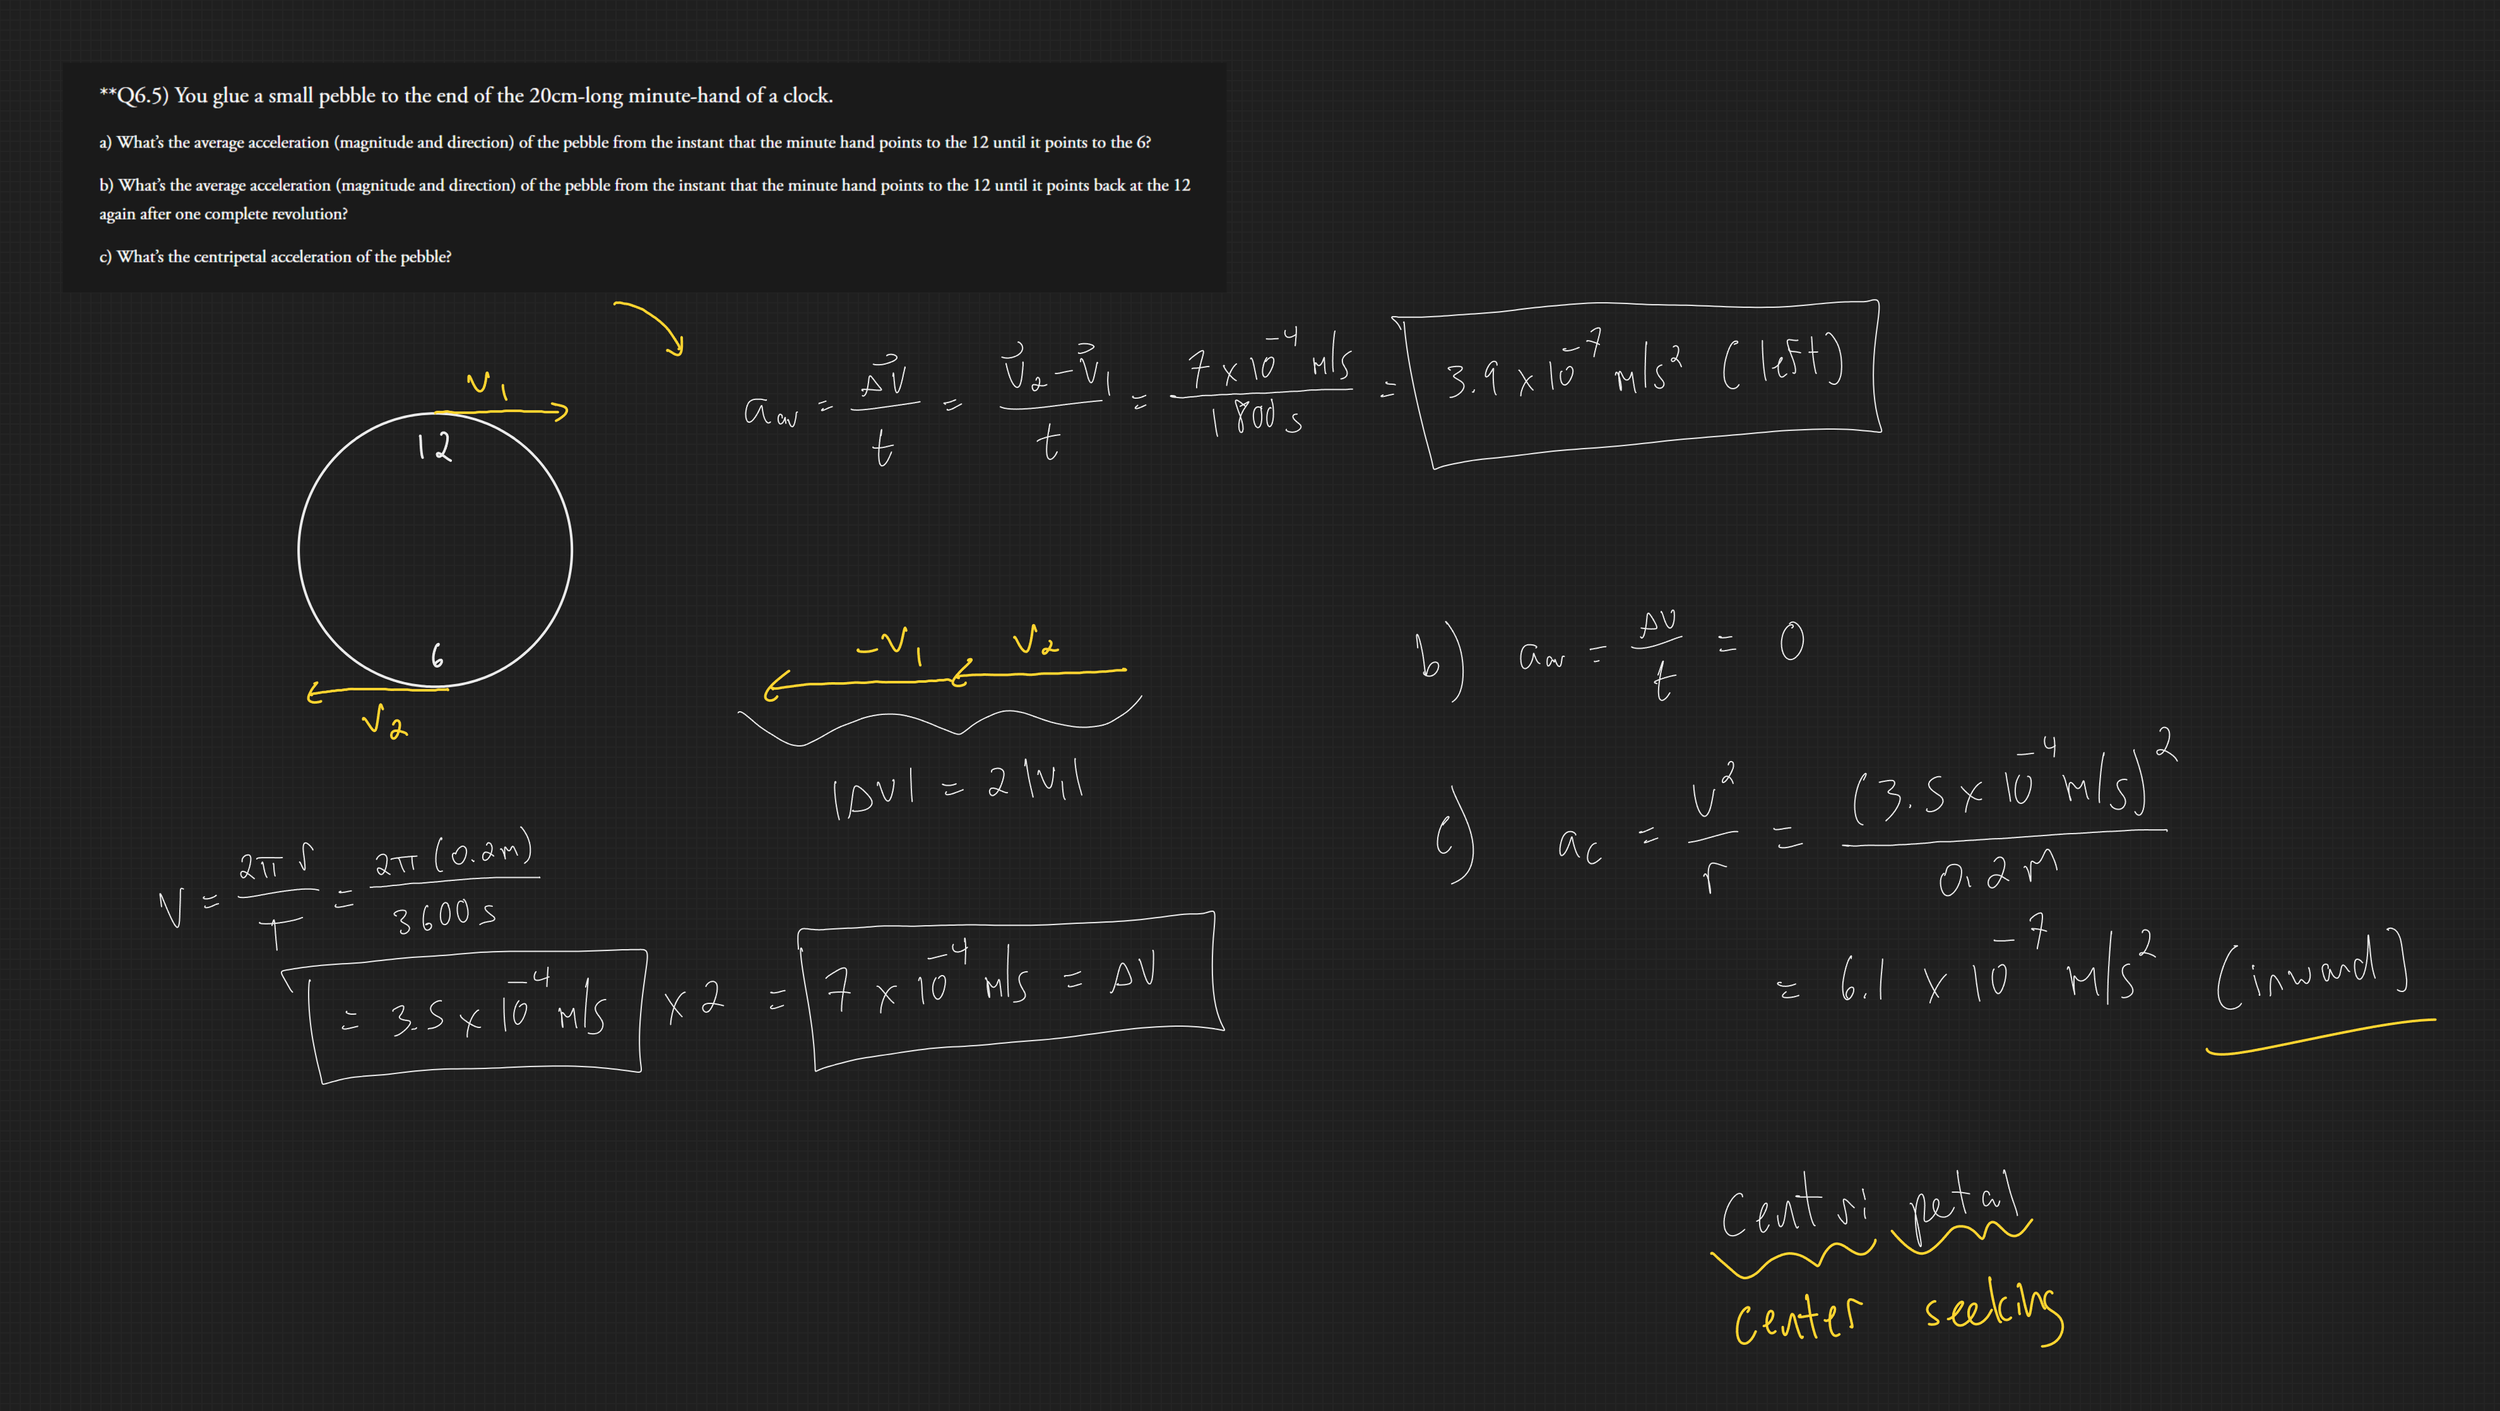 **Q6.5) You glue a small pebble to the end of the 20cm-long minute-hand of a clock.
a) What's the average acceleration (magnitude and direction) of the pebble from the instant that the minute hand points to the 12 until it points to the 6?
b) What's the average acceleration (magnitude and direction) of the pebble from the instant that the minute hand points to the 12 until it points back at the 12
again after one complete revolution?
c) What's the centripetal acceleration of the pebble?
V₁
12
6
V₂
a_av = ΔV⃗/t = (V⃗₂ - V⃗₁)/t = (7 x 10⁻⁴ m/s)/(1800 s) = 3.9 x 10⁻⁷ m/s² (left)
-V₁ V₂
|ΔV| = 2|V₁|
V = 2πr/T = 2π(0.2m)/3600 s
= 3.5 x 10⁻⁴ m/s x 2 = 7 x 10⁻⁴ m/s = ΔV
b) a_av = ΔV/t = 0
c) a_c = V²/r = (3.5 x 10⁻⁴ m/s)²/0.2m
= 6.1 x 10⁻⁷ m/s² (inward)
Centri petal
Center seeking